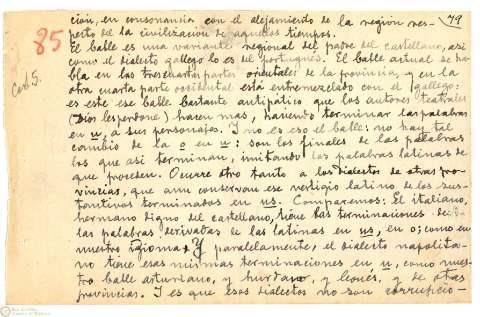 79
85
Cad. 5.
ción, en consonancia con el alejamiento de la región res-
pecto del la civilización de aquellos tiempos.
El bable es una variante regional del padre del castellano, así
como el dialecto gallego lo es del portugués. El bable actual se ha-
bla en las tres cuartas partes orientales de la provincia, y en la
otra cuarta parte occidental está entremezclado con el gallego:
es este ese bable bastante antipático que los autores teatrales
(Dios les perdone) hacen mas, haciendo terminar las palabras
en u, a sus personajes. Y no es eso el bable: no hay tal
cambio de la o en u: son los finales de las palabras
los que así terminan, imitando las palabras latinas de
que proceden. Ocurre otro tanto a los dialectos de otras pro-
vincias, que aun conservan ese vestigio latino de los sus-
tantivos terminados en us. Comparemos: El italiano,
hermano digno del castellano, tiene las terminaciones de
las palabras derivadas de las latinas en us, en o; como en
nuestro idioma. Y paralelamente, el dialecto napolita-
no tiene esas mismas terminaciones en u, como nues-
tro bable asturiano, y hurdano, y leonés, y de otras
provincias. Y es que esos dialectos no son corrupcio-